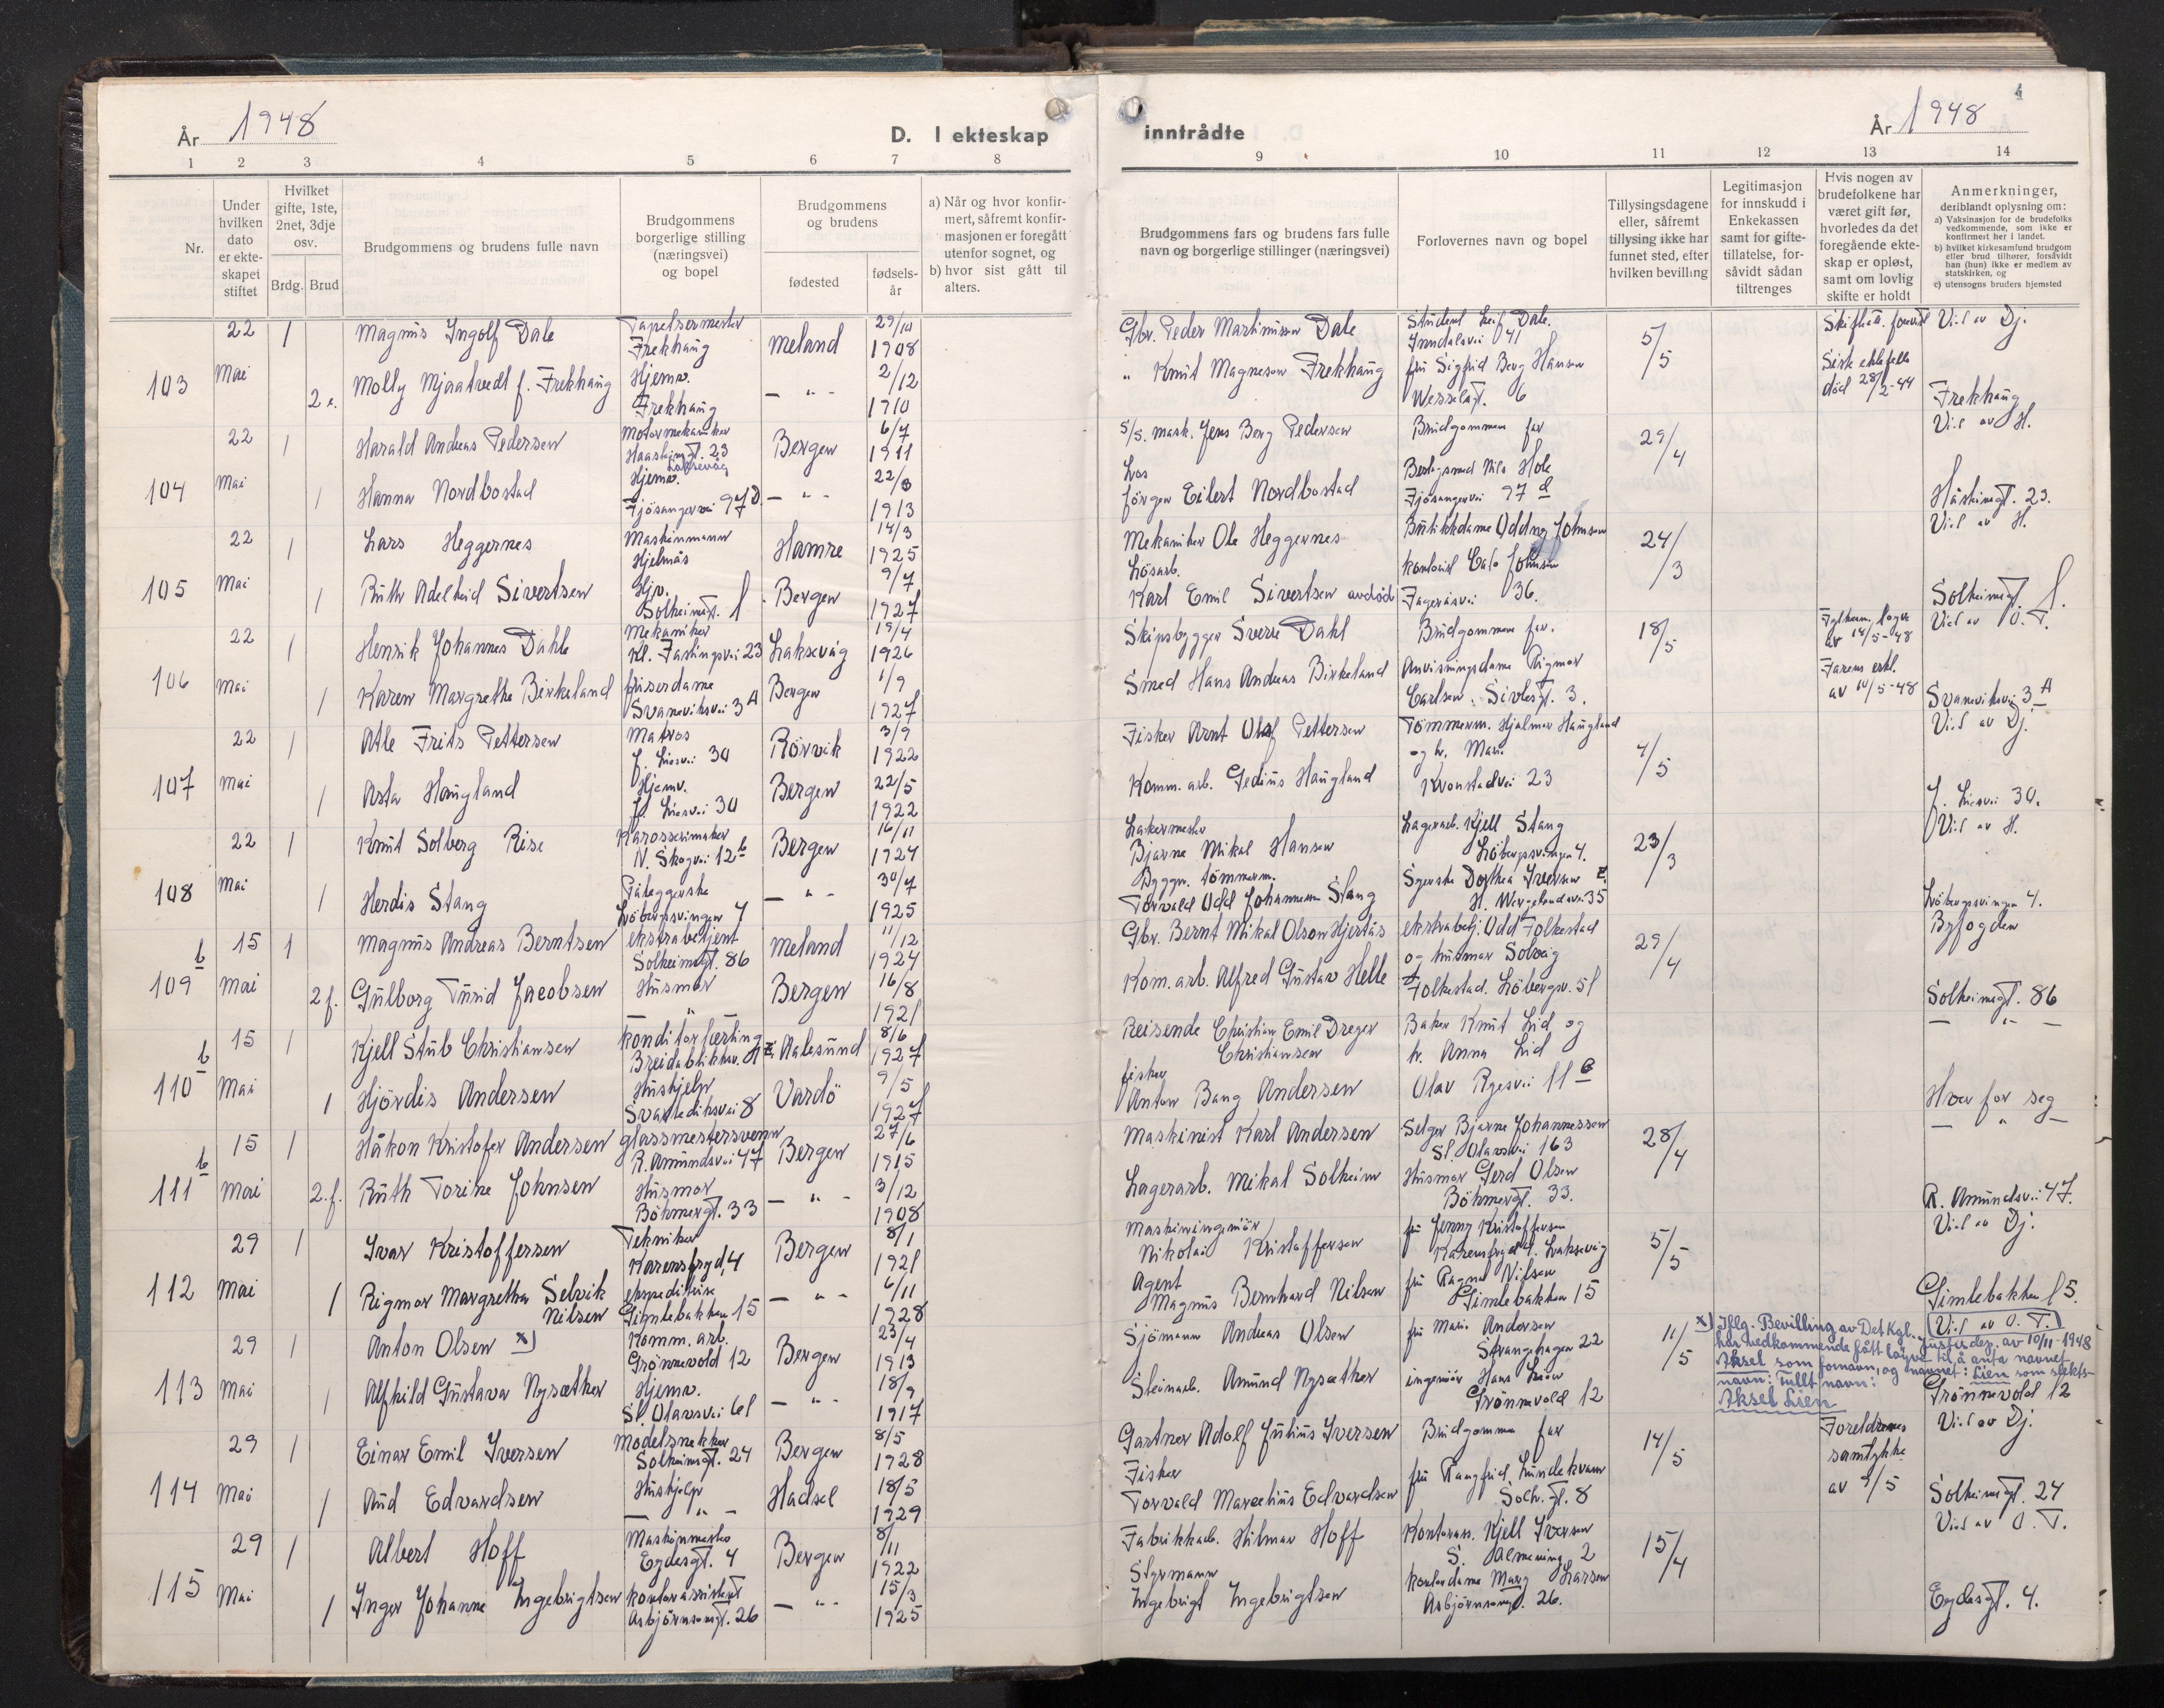 År 1948
D. I ekteskap
1 2 3 4 5 6 7 8
Nr.
Under hvilken dato er ekteskapet stiftet
Hvilket gifte, 1ste, 2net, 3dje osv.
Brdg. Brud
Brudgommens og brudens fulle navn
Brudgommens borgerlige stilling (næringsvei) og bopel
Brudgommens og brudens
fødested
fødsels-år
a) Når og hvor konfirmert, såfremt konfirmasjonen er foregått utenfor sognet, og
b) hvor sist gått til alters.
22 1 Magnus Ingolf Dale Tapetsermester Frekhaug Meland 29/10 1908
103 Mai 2 e. Molly Mjaatvedt f. Frekhaug Hjemv. Frekhaug — " — 2/12 1910
22 1 Harald Andreas Pedersen Motormekaniker 23 Laksevåg Bergen 6/7 1911
104 Mai 1 Hanna Nordbostad Hjemv. Fjösangervei 97 D — " — 22/8 1913
22 1 Lars Heggernes Maskinmann Hjelmås Hamre 14/3 1925
105 Mai 1 Ruth Adelheid Sivertsen Hjv. Solheimsgt. 1 Bergen 9/7 1927
22 1 Henrik Johannes Dahle Mekaniker Kl. Fastingsvei 23 Laksevåg 19/4 1926
106 Mai 1 Karen Margrethe Birkeland friserdame Svaneviksvei 3 A Bergen 1/9 1927
22 1 Atle Frits Pettersen Matros J. Liesvei 30 Rörvik 3/9 1922
107 Mai 1 Asta Haugland Hjemv. J. Liesvei 30 Bergen 22/5 1922
22 1 Knut Solberg Rise Karosserimaker N. Skogvei 12 b Bergen 16/11 1924
108 Mai 1 Herdis Stang Påleggerske Löbergsvingen 4 — " — 30/7 1925
15 1 Magnus Andreas Berntsen ekstrabetjent Solheimsgt. 86 Meland 11/12 1924
109 b Mai 2 f. Gulborg Turid Jacobsen Husmor — " — Bergen 16/8 1921
15 1 Kjell Stub Christiansen Konditorlærling Breidablikkv. Aalesund 8/6 1927
110 b Mai 1 Hjördis Andersen Hushjelp Svartediksvei 8 Vardö 9/5 1927
15 1 Håkon Kristofer Andersen glassmestersvenn R. Amundsvei 47 Bergen 27/6 1915
111 b Mai 2.f. Ruth Torine Johnsen Husmor Böhmergt. 33 — " — 3/12 1908
29 1 Ivar Kristoffersen Tekniker Karensfryd, 4 Bergen 8/1 1921
112 Mai 1 Rigmor Margretha Selvik Nilsen ekspeditrise Gimlebakken 15 — " — 6/11 1928
29 1 Anton Olsen x) Komm. arb. Grönnevold 12 Bergen 23/4 1913
113 Mai 1 Alfhild Gustava Nysæther Hjemv. St. Olavsvei 61 — " — 18/9 1917
29 1 Einar Emil Iversen Modelsnekker Solheimsgt. 24 Bergen 8/5 1928
114 Mai 1 Aud Edvardsen Hushjelp — " — Hadsel 18/5 1929
29 1 Albert Hoff Maskinmester Egdesgt. 4 Bergen 8/11 1922
115 Mai 1 Inger Johanne Ingebrigtsen kontorassistent Asbjörnsensgt. 26 — " — 15/3 1925
inntrådte
År 1948
4
9 10 11 12 13 14
Brudgommens fars og brudens fars fulle navn og borgerlige stillinger (næringsvei)
Forlovernes navn og bopel
Tillysingsdagene eller, såfremt tillysing ikke har funnet sted, efter hvilken bevilling
Legitimasjon for innskudd i Enkekassen samt for giftetillatelse, forsåvidt sådan tiltrenges
Hvis nogen av brudefolkene har været gift før, hvorledes da det foregående ekteskap er opløst, samt om lovlig skifte er holdt
Anmerkninger, deriblandt oplysning om:
a) Vaksinasjon for de brudefolks vedkommende, som ikke er konfirmert her i landet.
b) hvilket kirkesamfund brudgom eller brud tilhører, forsåvidt han (hun) ikke er medlem av statskirken, og
c) utensogns bruders hjemsted
Gbr. Peder Martinussen Dale Student Leif Dale. Inndalsvei 41 5/5 Skifteatt. Viel av Dj.
" Knut Magnesen Frekhaug fru Sigfrid Berg Hansen Wesselsgt. 6 Siste ektefelle död 28/2-44 Frekhaug
s/s. mask. Jens Berg Pedersen Brudgommens far 29/4 Viel av H.
Los Jörgen Eilert Nordbostad Nils Hole Fjösangervei 97 d 23.
Mekaniker Ole Heggernes Butikkdame Oddny Johnsen 24/3 Viel av H.
Lösarb. Karl Emil Sivertsen avdöd kontorist Johnsen Fageråsvei 36. Solheimsgt. 1.
Skipsbygger Sverre Dahl Brudgommens far. 18/5 av 14/5-48 Viel av O.T.
Smed Hans Andreas Birkeland Anvisningsdame Rigmor Carlsen. Sivlesgt. 3. Farens erkl. av 10/5-48 Svaneviksvei 3 A
Fisker Arnt Olaf Pettersen Tömmerm. Hjalmar Haugland og h. Marie 4/5 Viel av Dj.
Komm. arb. Gedius Haugland Kronstadvei 23 J. Liesvei 30.
Bjarne Mikal Hansen Lagerarb. Kjell Stang Löbergsvingen 4. 23/3 Viel av H.
Byggm. tömmerm. Torvald Odd Johannesen Stang Dorthea Iversen H. Wergelandsvei 35 Löbergsvingen 4.
Gbr. Bernt Mikal Olson Hjertås ekstrabetj. Odd Folkestad 29/4 Byfogden
Kom. arb. Alfred Gustav Helle og husmor Solveig Folkestad. Löbergsv. 51 Solheimsgt. 86
Reisende Christian Emil Dreyer Christiansen Baker Knut Lid og h. Anna Lid — " —
fisker Anton Bang Andersen Olav Ryesvei 11 Hver for seg
Maskinist Karl Andersen Selger Bjarne Johannessen St. Olavsvei 163 28/4 — " —
Lagerarb. Mikal Solheim Husmor Gerd Olsen Böhmergt. 33. R. Amundsvei 47.
Maskiningeniör Nikolai Kristoffersen fru Jenny Kristoffersen Karensfryd 4. Laksevåg 5/5 Viel av Dj.
Agent Magnus Bernhard Nilsen fru Ragna Nilsen Gimlebakken 15 Gimlebakken 15.
Sjömann Andreas Olsen fru Marie Andersen Strangehagen 22 11/5 Viel av O.T.
x) Iflg. Bevilling av Det Kgl. Justisdep. av 10/11-1948
har vedkommende fått löyve til å anta navnet
Aksel som fornavn, og navnet: Lien som slekts-
navn: Fullt navn:
Aksel Lien
Steinarb. Amund Nysæther ingeniör Hans Grönnevold 12 Grönnevold 12
Gartner Adolf Julius Iversen Brudgommens far 14/5 Foreldrenes samtykke av 9/5 Viel av Dj.
Fisker Torvald Marcelius Edvardsen fru Rangfrid Lundekvam Solh. gt. 8 Solheimsgt. 24
Fabrikkarb. Hilmar Hoff Kontorass. Kjell Iversen S. Almening 2 15/4 Viel av O.T.
Styrmann Ingebrigt Ingebrigtsen kontordame Mary Larsen Asbjörnsensgt. 26. Egdesgt. 4.